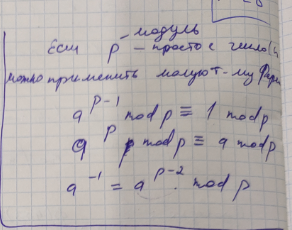 модуль
Если p - простое число
можно применить малую т-му Ферма
a^{p-1} mod p ≡ 1 mod p
a^p mod p ≡ a mod p
a^{-1} = a^{p-2} mod p